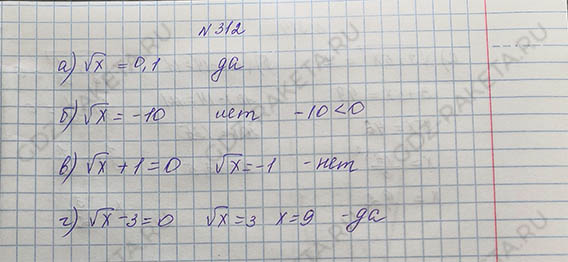 №312
а) √x = 0,1 да
б) √x = -10 нет -10<0
в) √x + 1 = 0 √x = -1 - нет
г) √x - 3 = 0 √x = 3 x = 9 - да
GDZ-RAKETA.RU